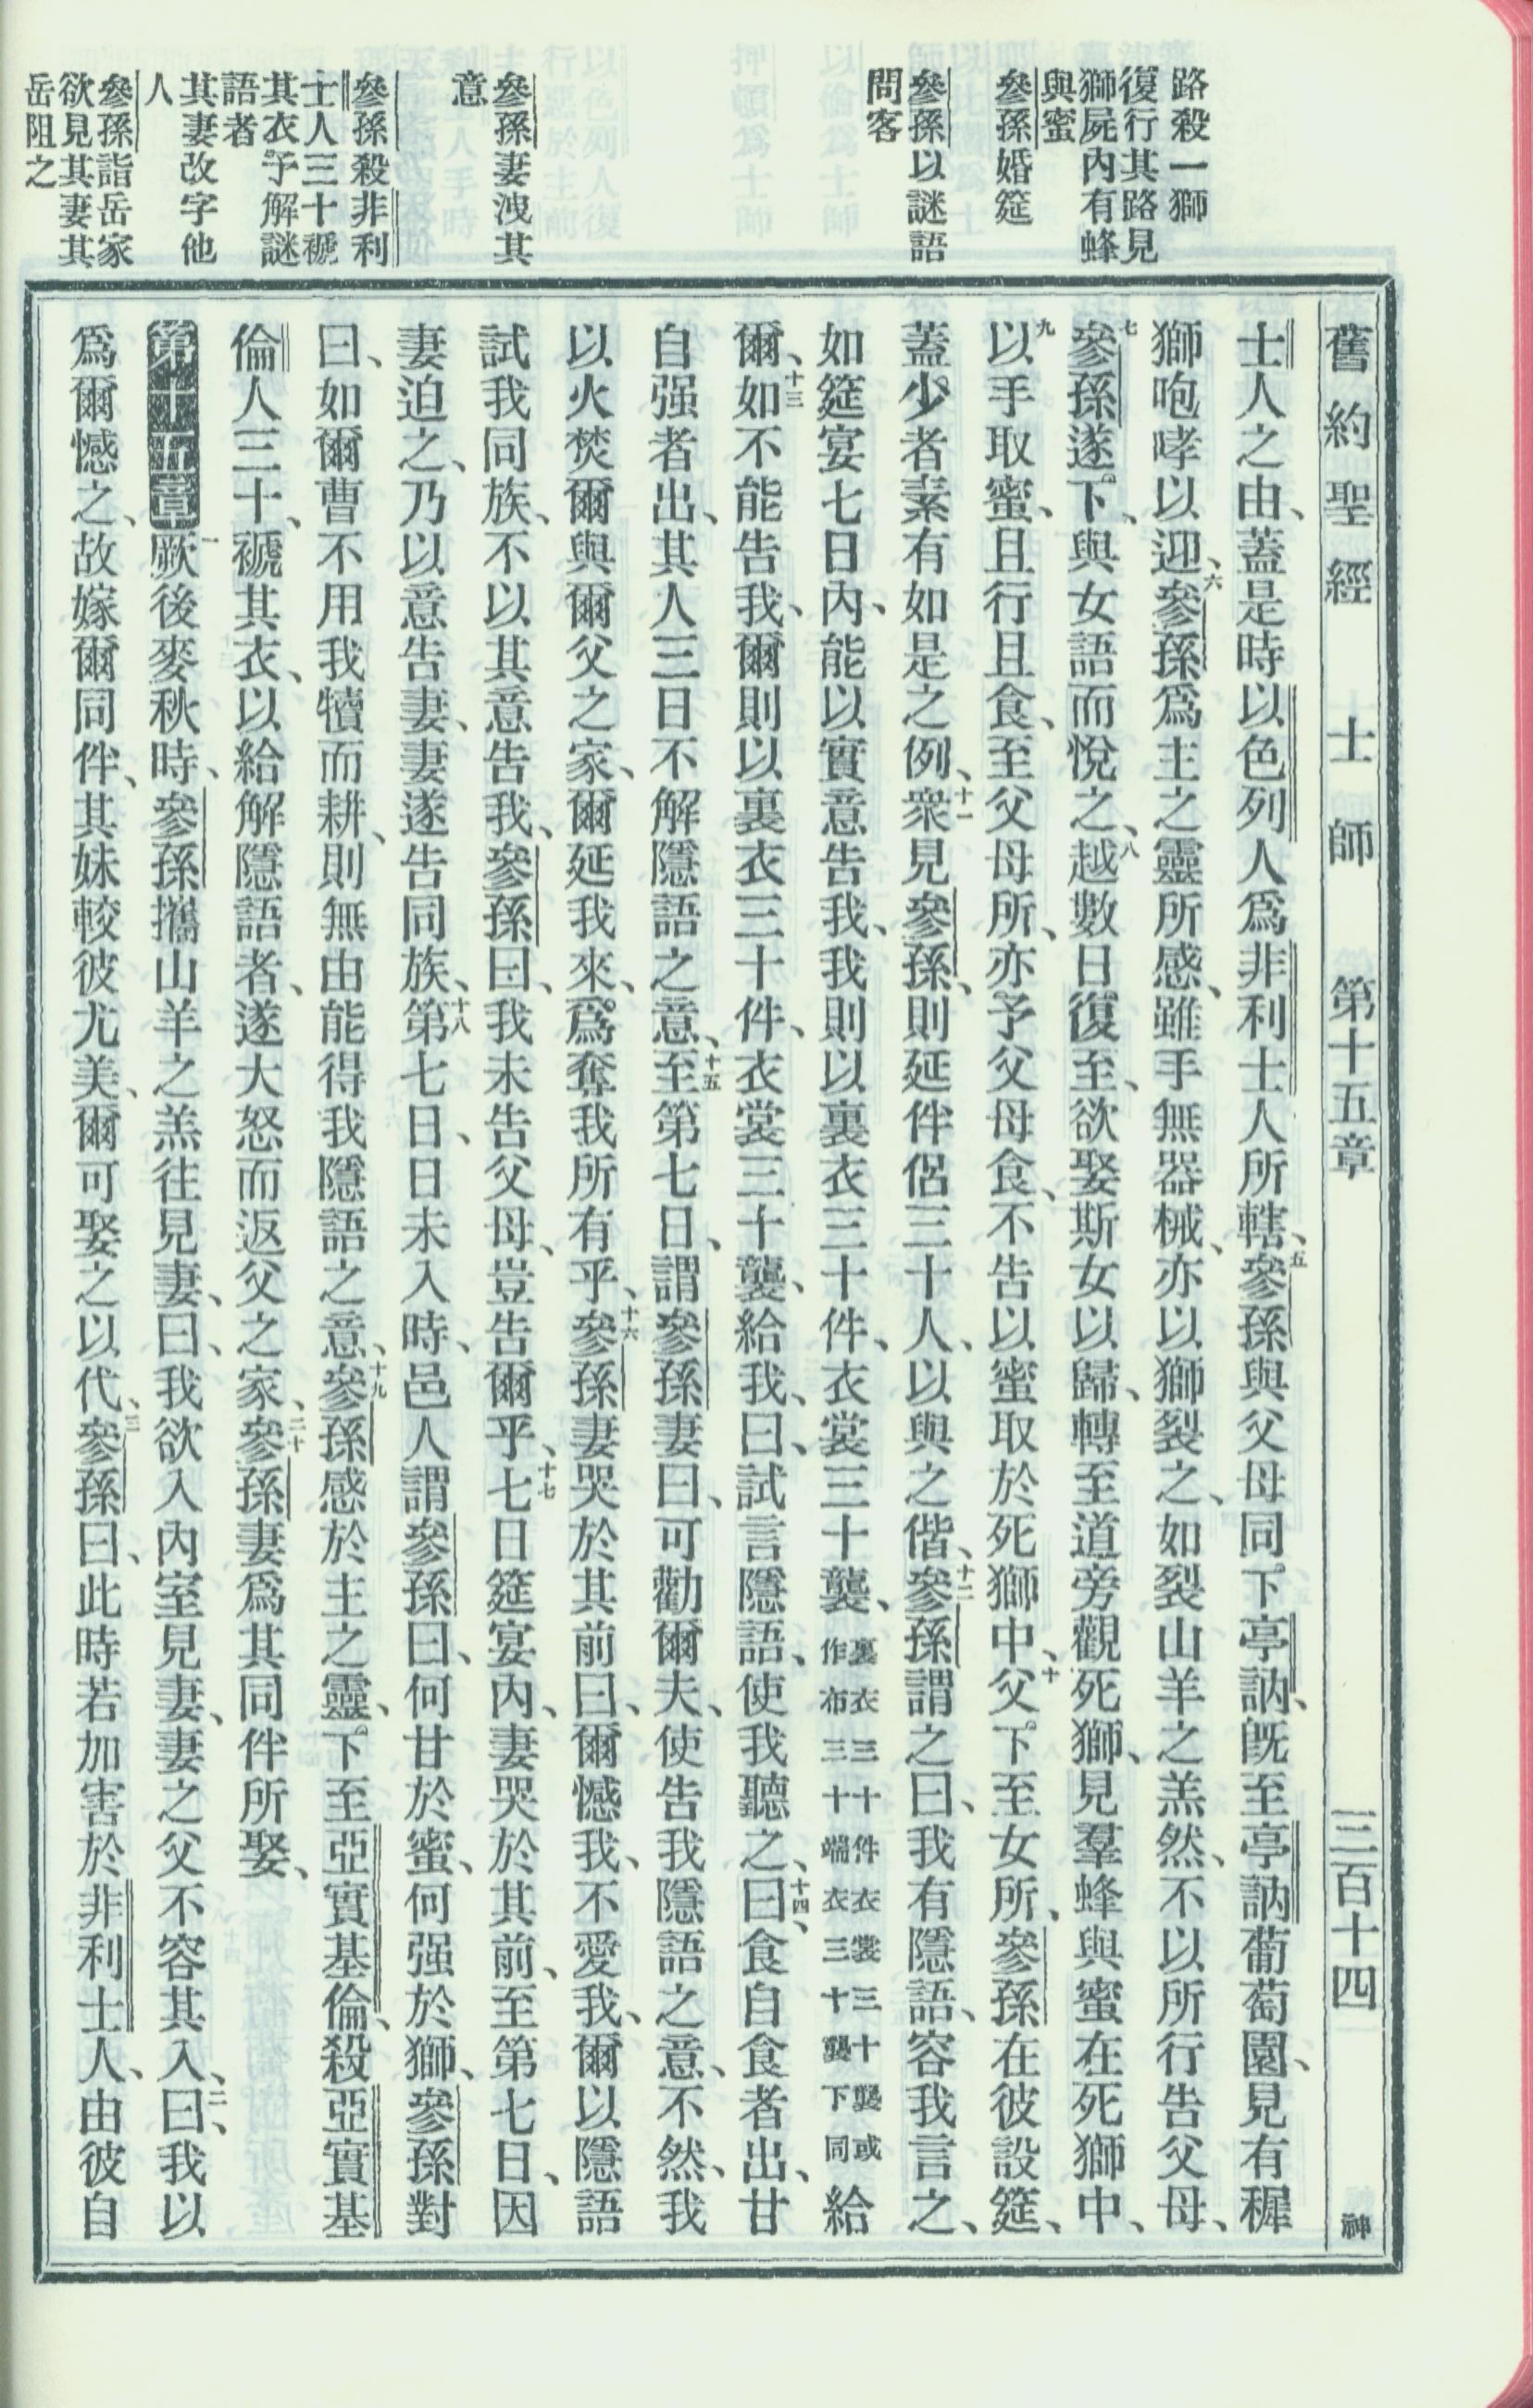 舊約聖經 士師 第十五章 三百十四 神
路殺一獅
復行其路見
獅屍內有蜂
與蜜
參孫婚筵
參孫以謎語
問客
參孫妻洩其
意
參孫殺非利
士人三十褫
其衣予解謎
語者
其妻改字他
人
參孫詣岳家
欲見其妻其
岳阻之
士人之由、蓋是時以色列人爲非利士人所轄、五參孫與父母同下亭訥、旣至亭訥葡萄園、見有穉
獅咆哮以迎、六參孫爲主之靈所感、雖手無器械、亦以獅裂之、如裂山羊之羔然、不以所行告父母、
七參孫遂下、與女語而悅之、八越數日復至、欲娶斯女以歸、轉至道旁觀死獅、見羣蜂與蜜在死獅中、
九以手取蜜、且行且食、至父母所、亦予父母食、不告以蜜取於死獅中、十父下至女所、參孫在彼設筵、
蓋少者素有如是之例、十一衆見參孫、則延伴侶三十人、以與之偕、十二參孫謂之曰、我有隱語、容我言之、
如筵宴七日內、能以實意告我、我則以裏衣三十件、衣裳三十襲、裏衣三十件衣裳三十襲或作布三十端衣三十襲下同給
爾、十三如不能告我、爾則以裏衣三十件、衣裳三十襲、給我、曰、試言隱語、使我聽之、十四曰、食自食者出、甘
自强者出、其人三日不解隱語之意、十五至第七日、謂參孫妻曰、可勸爾夫、使告我隱語之意、不然、我
以火焚爾與爾父之家、爾延我來、爲奪我所有乎、十六參孫妻哭於其前曰、爾憾我、不愛我、爾以隱語
試我同族、不以其意告我、參孫曰、我未告父母、豈告爾乎、十七七日筵宴內、妻哭於其前、至第七日、因
妻迫之、乃以意告妻、妻遂告同族、十八第七日、日未入時、邑人謂參孫曰、何甘於蜜、何强於獅、參孫對
曰、如爾曹不用我犢而耕、則無由能得我隱語之意、十九參孫感於主之靈、下至亞實基倫、殺亞實基
倫人三十、褫其衣、以給解隱語者、遂大怒而返父之家、二十參孫妻爲其同伴所娶、
第十五章一厥後麥秋時、參孫攜山羊之羔往見妻、曰、我欲入內室見妻、妻之父不容其入、二曰、我以
爲爾憾之、故嫁爾同伴、其妹較彼尤美、爾可娶之以代、三參孫曰、此時若加害於非利士人、由彼自